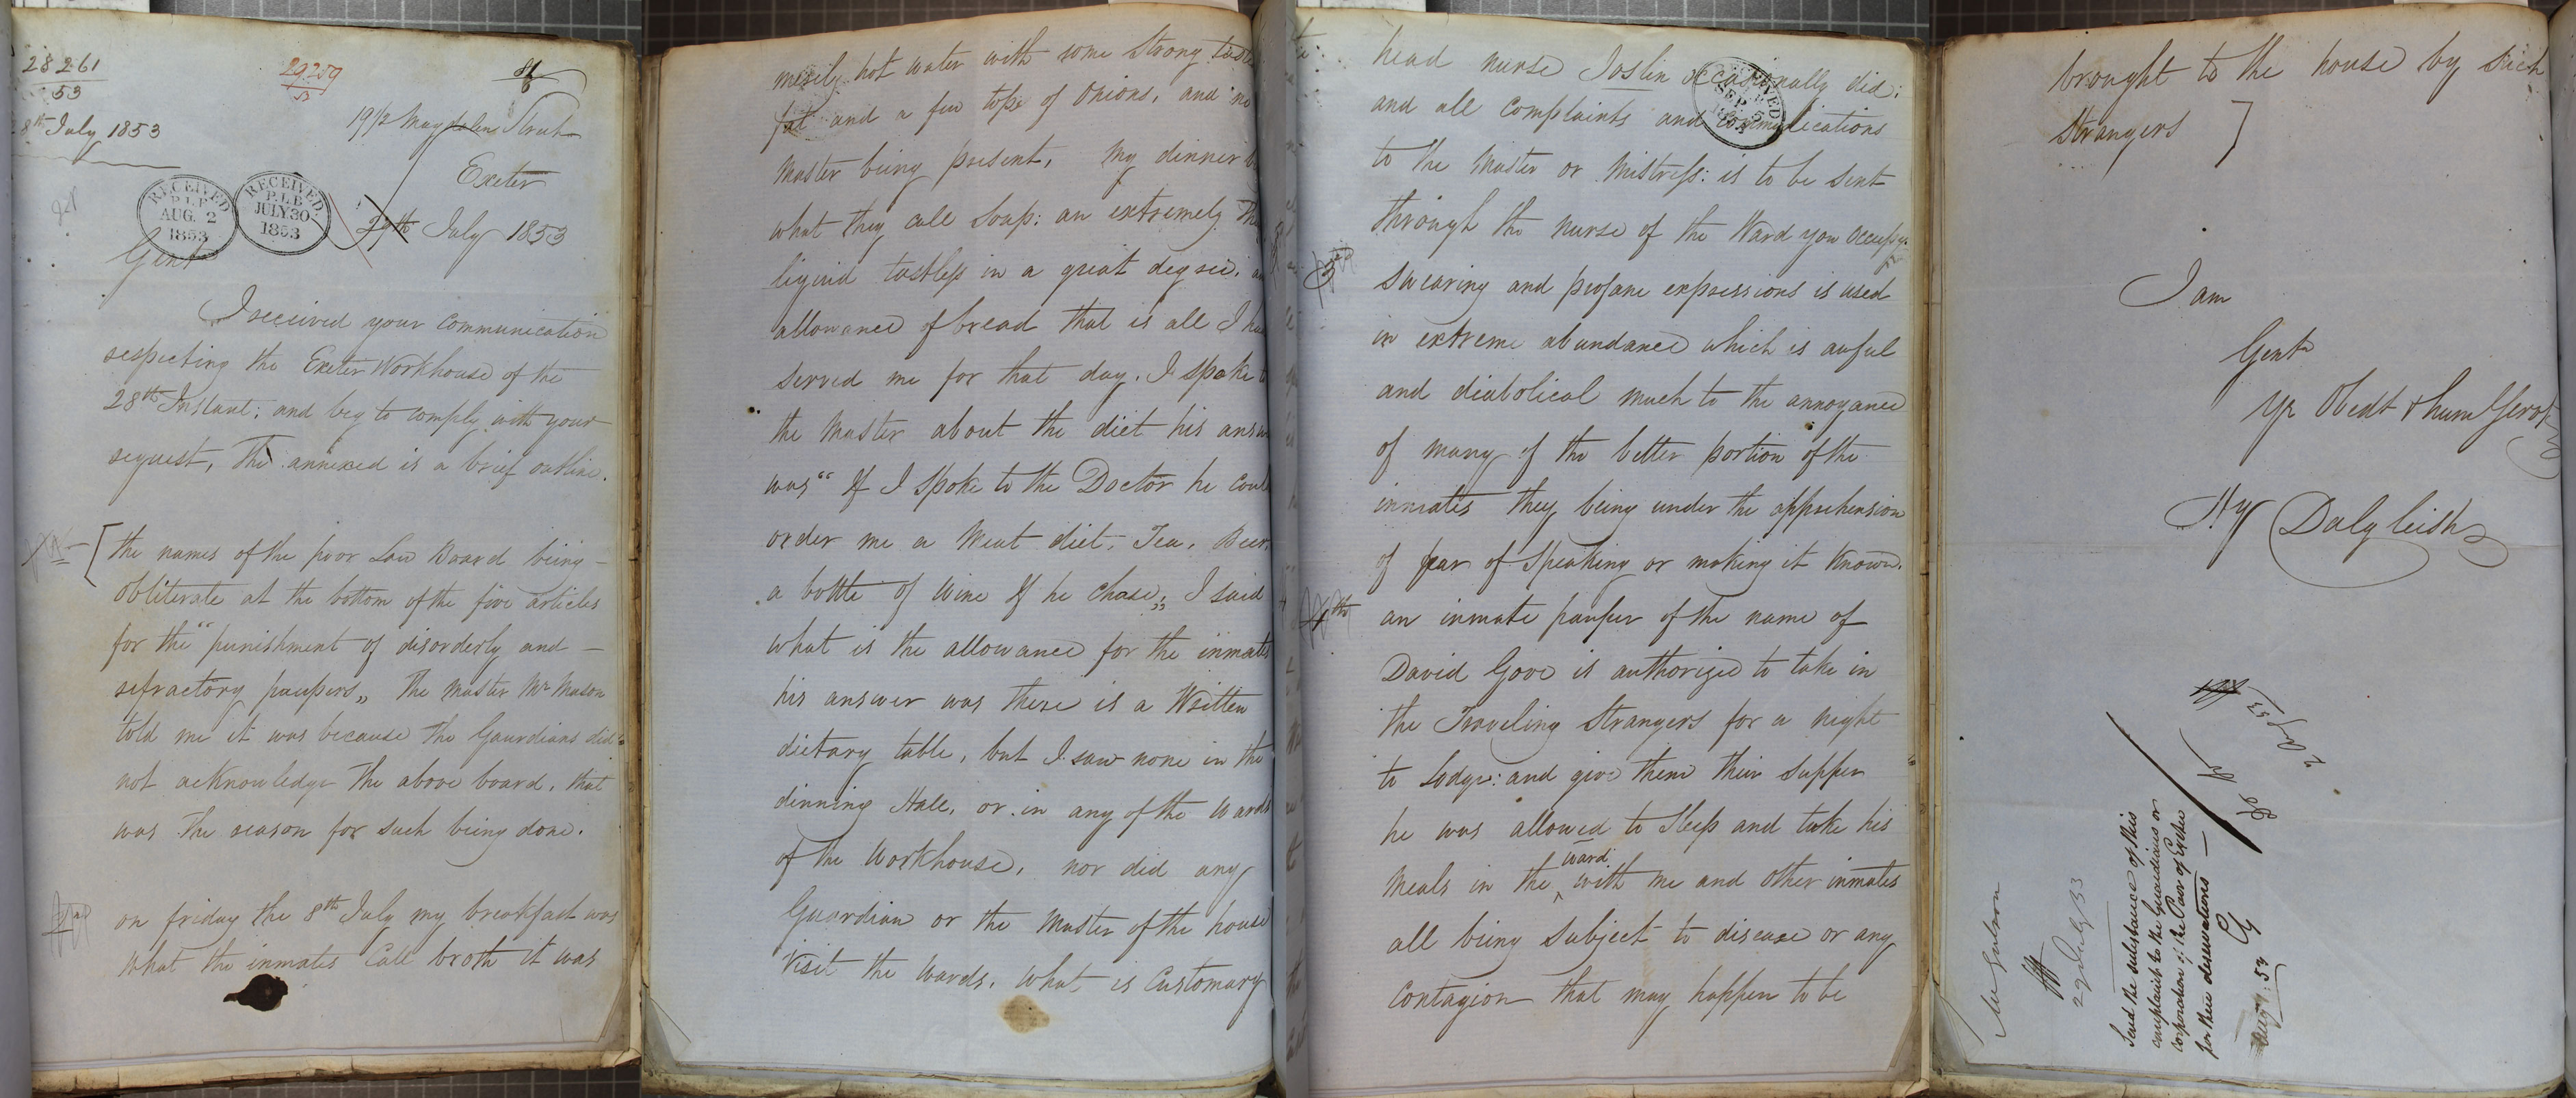 28261
53
8th July 1853
29259
53
19 1/2 Magdalen Street
Exeter
RECEIVED
P.L.B
AUG. 2
1853
RECEIVED
P.L.B
JULY 30
1853
29th July 1853
Gent
I received your communication
respecting the Exeter Workhouse of the
28th Instant; and beg to comply with your
request, The annexed is a brief outline.
[the names of the poor Law Board being
obliterate at the bottom of the five articles
for the "punishment of disorderly and
refractory paupers" The Master Mr Mason
told me it was because the Gaurdians did
not acknowledge the above board, that
was the reason for such being done.
2nd
on friday the 8th July my breakfast was
what the inmates call broth it was
merily hot water with some strong
fat and a few tops of Onions, and no
Master being present, My dinner
what they call Soup: an extremely
liquid tastless in a great degree:
allowance of bread that is all I had
served me for that day. I spoke to
the Master about the diet his answer
was "If I spoke to the Doctor he could
order me a Meat diet, Tea, Beer,
a bottle of Wine If he chose" I said
what is the allowance for the inmates
his answer was there is a Written
dietary table, but I saw none in the
dinning Hall, or in any of the wards
of the Workhouse, nor did any
Guardian or the Master of the house
Visit the wards, what is Customary
head nurse Joslin occasionally did:
RECEIVED
SEP. 5
and all complaints and communications
to the Master or Mistress: is to be sent
through the nurse of the Ward you occupy.
3rd
swearing and profane expressions is used
in extreme abundance which is awful
and diabolical much to the annoyance
of many of the better portion of the
inmates they being under the apprehension
of fear of speaking or making it known.
4th
an inmate pauper of the name of
David Gove is authorized to take in
the Traveling Strangers for a night
to Lodge: and give them their supper
he was allowed to sleep and take his
ward
Meals in the ^ with me and other inmates
all being subject to disease or any
Contagion that may happen to be
brought to the house by such
strangers ]
I am
Gent
Yr Obedt & humbl Servt
Hy Dalgleish
29 July 53
Send the substance of this
complaint to the Guardians or
corporation of the Poor of Exeter
for their observations —
2 Aug 53